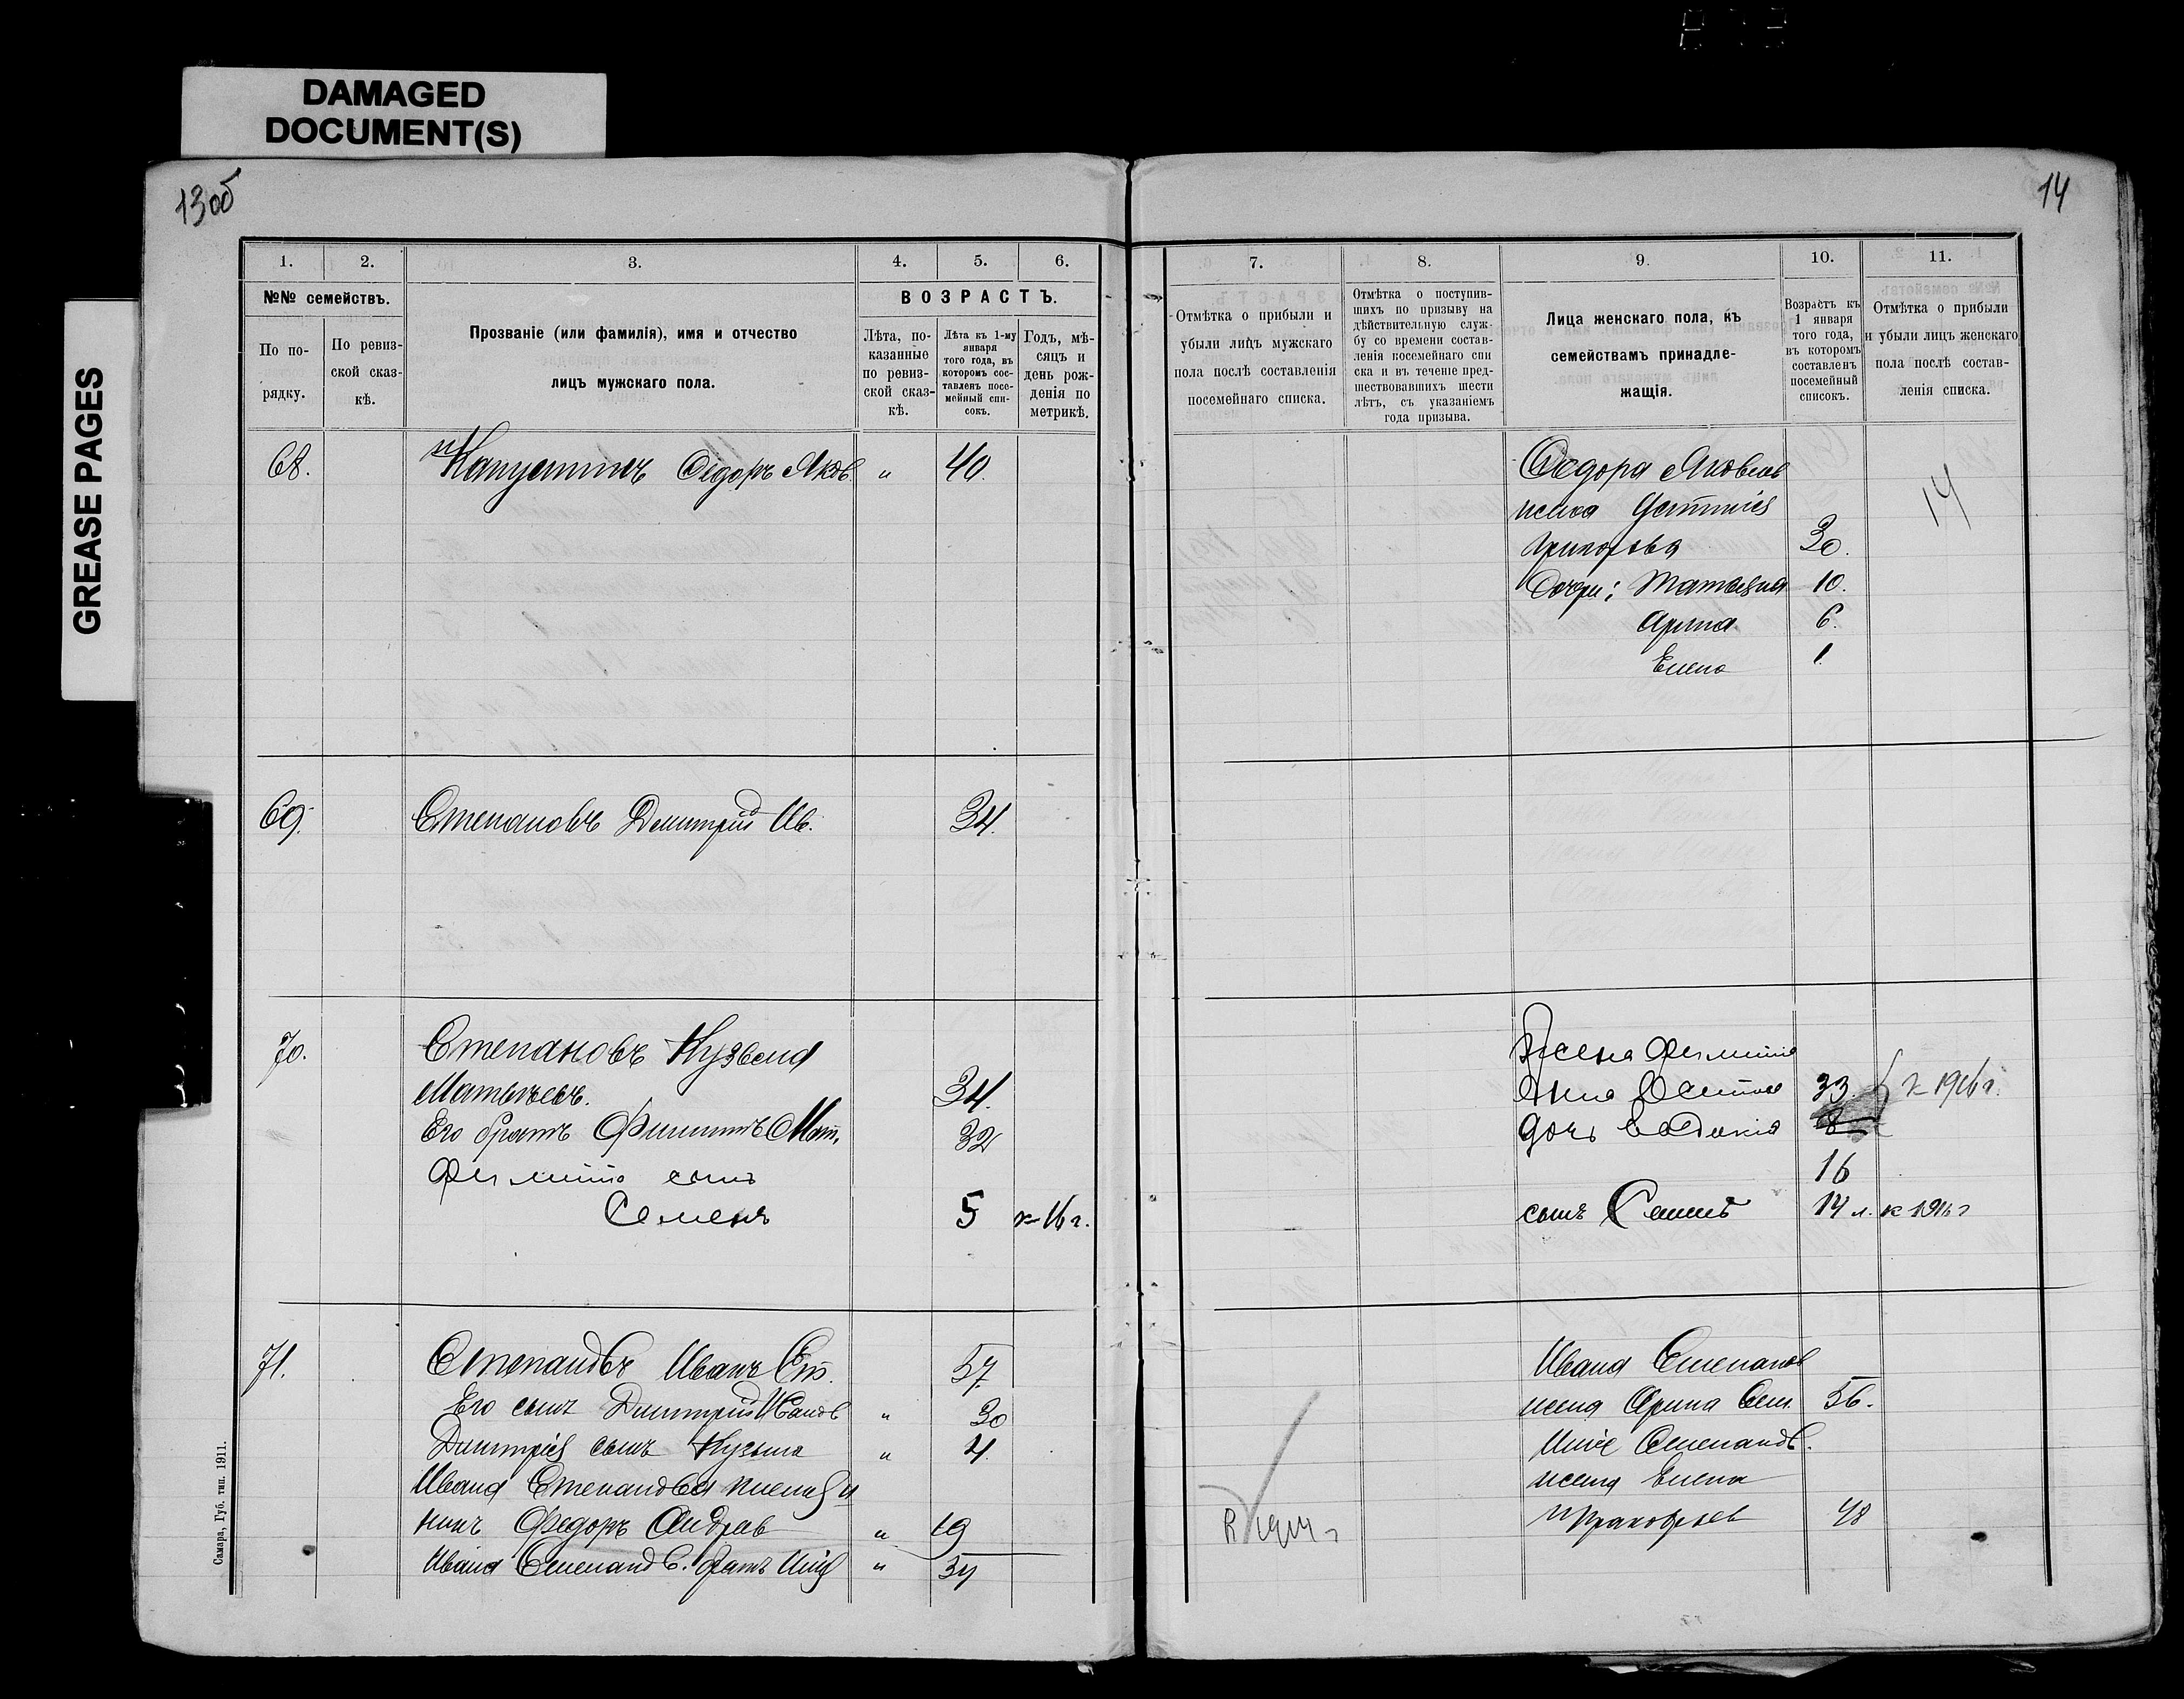 DAMAGED
DOCUMENT(S)
GREASE PAGES
13об
14
1.
2.
3.
4.
5.
6.
№№ семействъ.
По по-
рядку.
По ревиз-
ской сказ-
кѣ.
Прозваніе (или фамилія), имя и отчество
лицъ мужскаго пола.
ВОЗРАСТЪ.
Лѣта, по-
казанные
по ревиз-
ской сказ-
кѣ.
Лѣта къ 1-му
января
того года, въ
которомъ сос-
тавленъ посе-
мейный спи-
сокъ.
Годъ, мѣ-
сяцъ и
день рож-
денія по
метрикѣ.
68.
Капустинъ Ѳедоръ Яков. " 40.
69.
Степановъ Дмитрій Ив. 34.
70.
Степановъ Кузьма
Матвѣевъ. 34.
Его братъ Филиппъ Мат. 32
Филиппа сынъ
Семенъ 5 к 16 г.
71.
Степановъ Иванъ Ст. 57.
Его сынъ Дмитрій Иванов " 30
Дмитрія сынъ Кузьма " 4.
Ивана Степанова племян
никъ Федоръ Андреев " 19
Ивана Степанов. братъ Илія " 34
Самара, Губ. тип. 1911.
7.
8.
9.
10.
11.
Отмѣтка о прибыли и
убыли лицъ мужскаго
пола послѣ составленія
посемейнаго списка.
Отмѣтка о поступив-
шихъ по призыву на
дѣйствительную служ-
бу со времени состав-
ленія посемейнаго спи
ска и въ теченіе пред-
шествовавшихъ шести
лѣтъ, съ указаніемъ
года призыва.
Лица женскаго пола, къ
семействамъ принадле-
жащія.
Возрастъ къ
1 января
того года,
въ которомъ
составленъ
посемейный
списокъ.
Отмѣтка о прибыли
и убыли лицъ женскаго
пола послѣ состав-
ленія списка.
Ѳедора Яковлев
жена Устинія
Григорьева 30.
Дочери: Татьяна 10.
Арина 6.
Елена 1.
14
Жена Филиппа
Анна 33. к 1916 г.
дочь Евдокія 8
16
сынъ Семенъ 14 л. к 1916 г
Ивана Степанов
жена Арина Сем. 56.
Иліи Степанов.
жена Елена
Прокофьев 48
1914 г